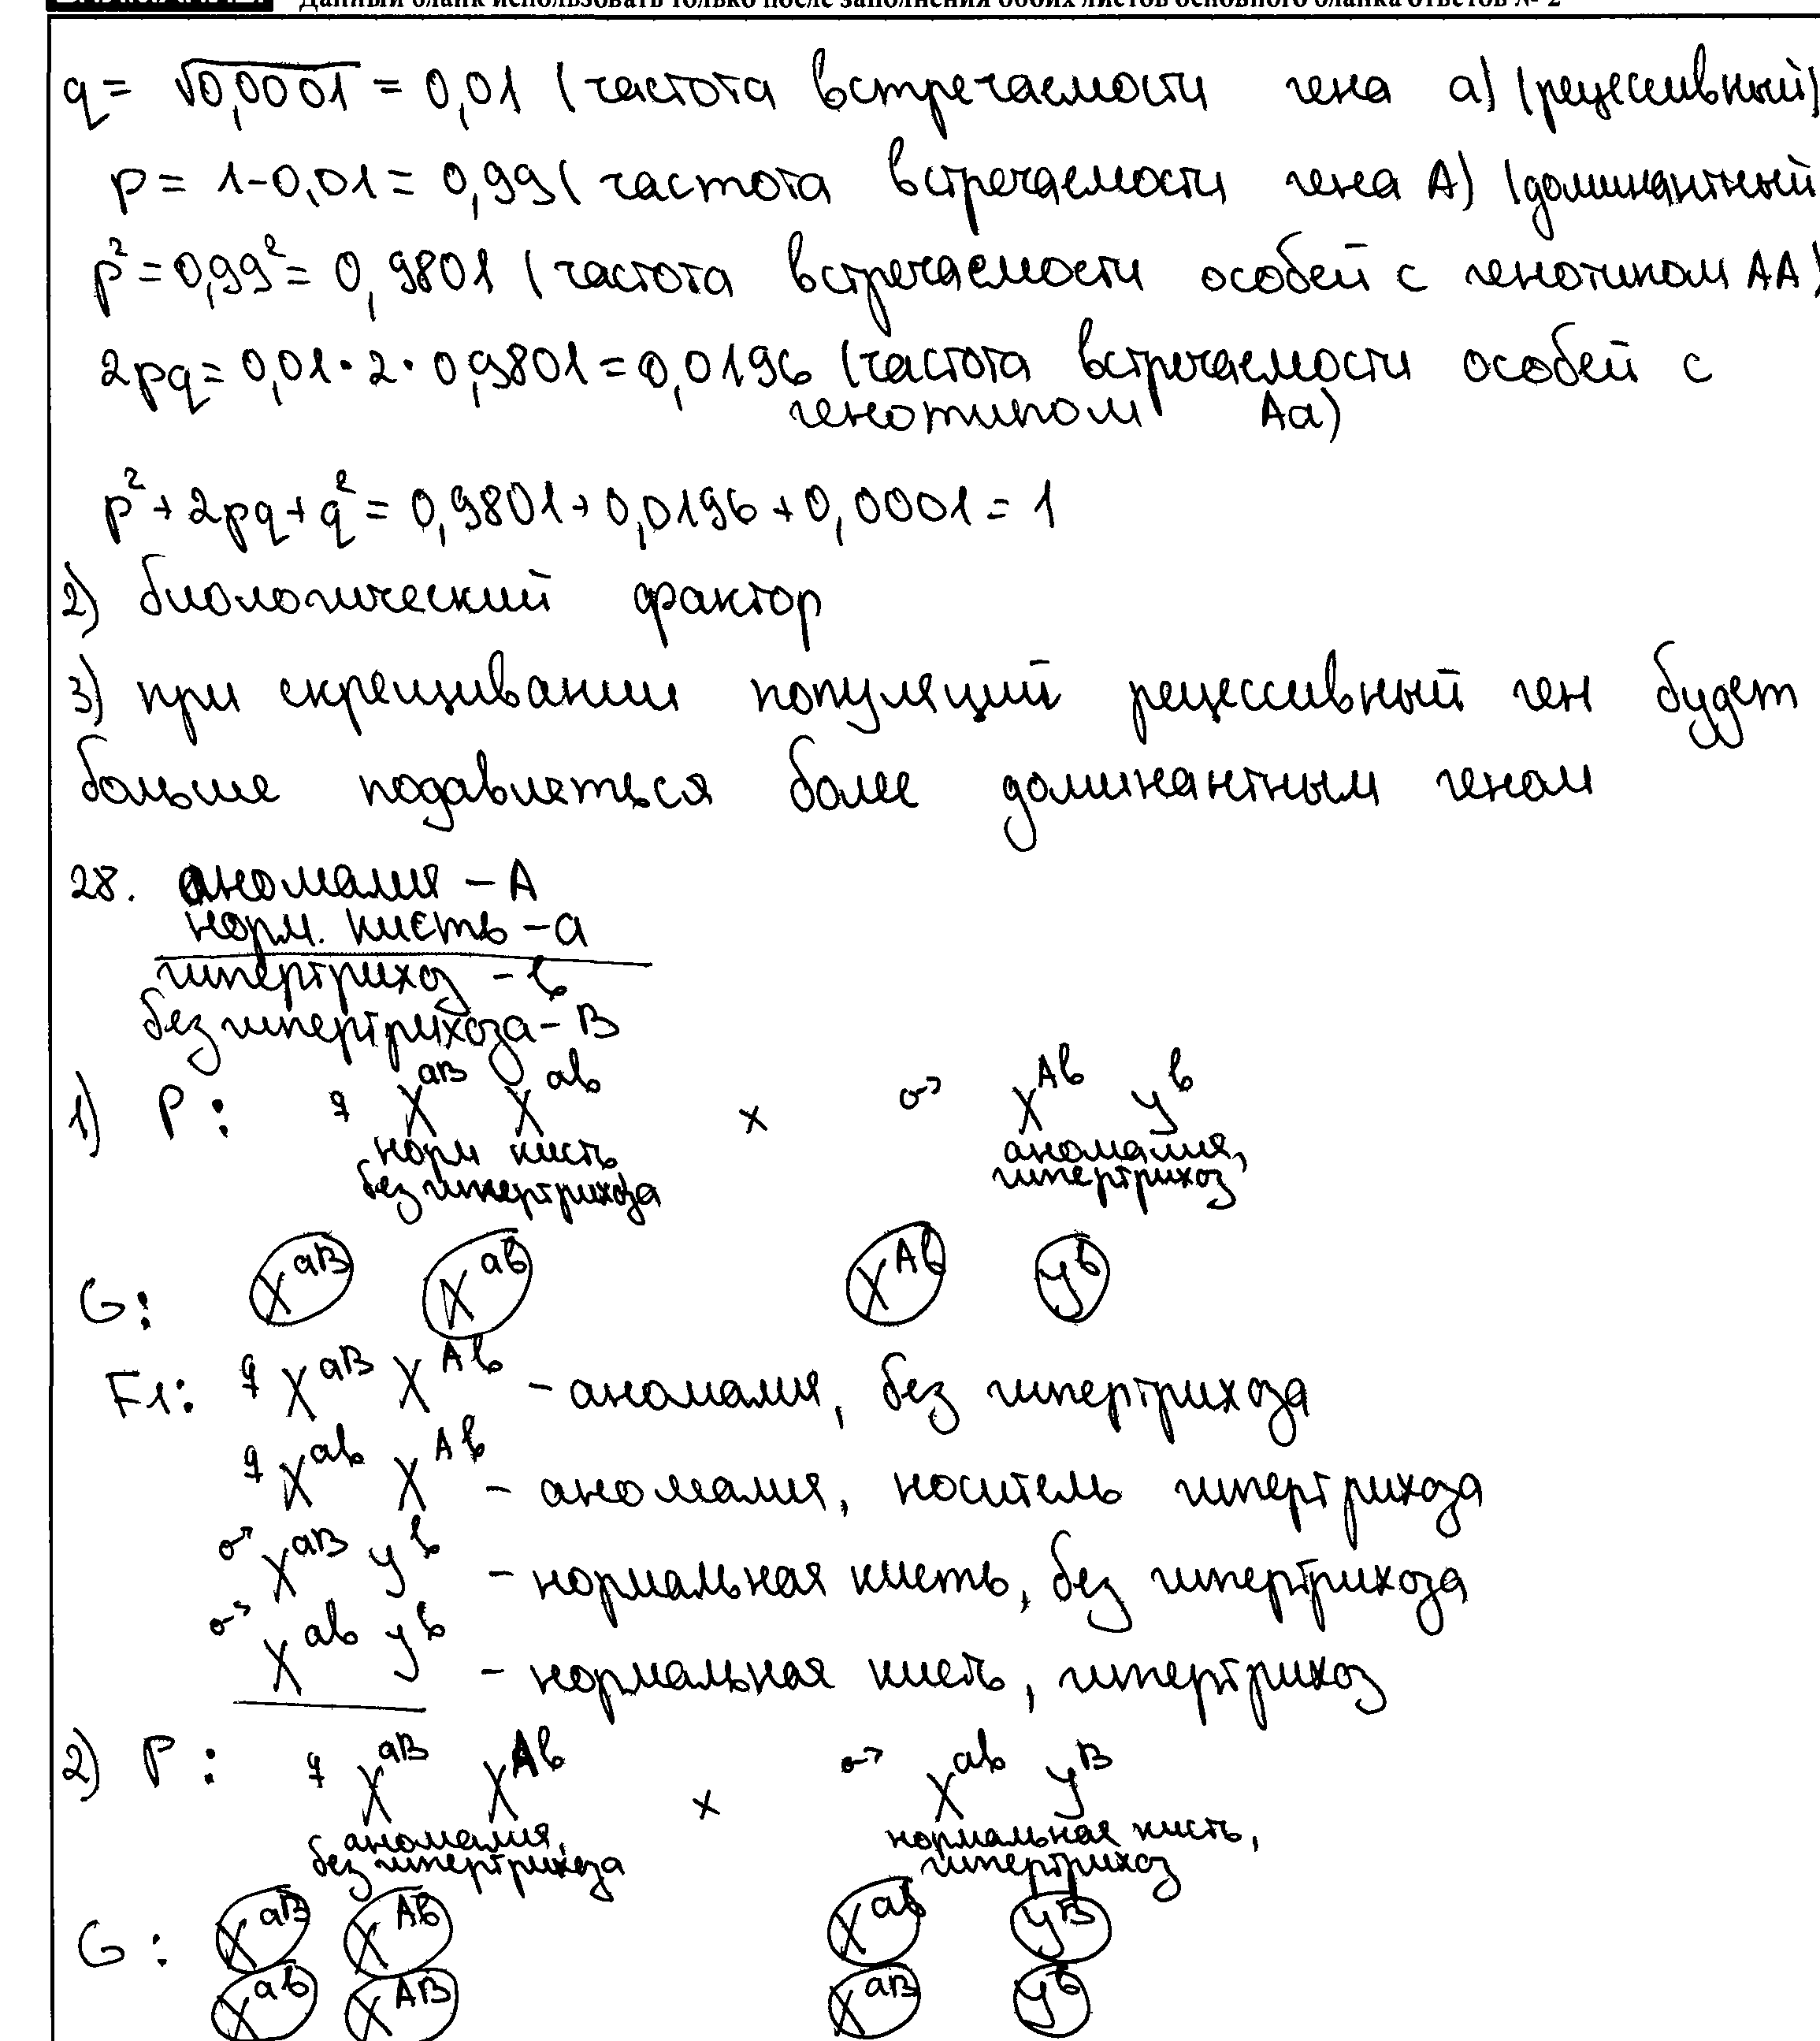 Данный бланк использовать только после заполнения обоих листов основного бланка ответов № 2
q = √0,0001 = 0,01 (частота встречаемости гена а) (рецессивный)
p = 1-0,01 = 0,99 (частота встречаемости гена А) (доминантный
p² = 0,99² = 0,9801 (частота встречаемости особей с генотипом АА)
2pq = 0,01 · 2 · 0,9801 = 0,0196 (частота встречаемости особей с
генотипом Аа)
p² + 2pq + q² = 0,9801 + 0,0196 + 0,0001 = 1
2) биологический фактор
3) при скрещивании популяций рецессивный ген будет
больше подавляеться более доминантным геном
28. аномалия - А
норм. кисть - а
гипертрихоз - в
без гипертрихоза - В
1) Р: ♀ Xᵃᴮ Xᵃᵇ × ♂ Xᴬᵇ Yᵇ
норм кисть аномалия,
без гипертрихоза гипертрихоз
G: Xᵃᴮ Xᵃᵇ Xᴬᵇ Yᵇ
F1: ♀ Xᵃᴮ Xᴬᵇ - аномалия, без гипертрихоза
♀ Xᵃᵇ Xᴬᵇ - аномалия, носитель гипертрихоза
♂ Xᵃᴮ Yᵇ - нормальная кисть, без гипертрихоза
♂ Xᵃᵇ Yᵇ - нормальная кисть, гипертрихоз
2) Р: ♀ Xᵃᴮ Xᴬᵇ × ♂ Xᵃᵇ Yᴮ
аномалия, нормальная кисть,
без гипертрихоза гипертрихоз
G: Xᵃᴮ Xᴬᵇ Xᵃᵇ Yᴮ
Xᵃᵇ Xᴬᴮ Xᵃᴮ Yᵇ